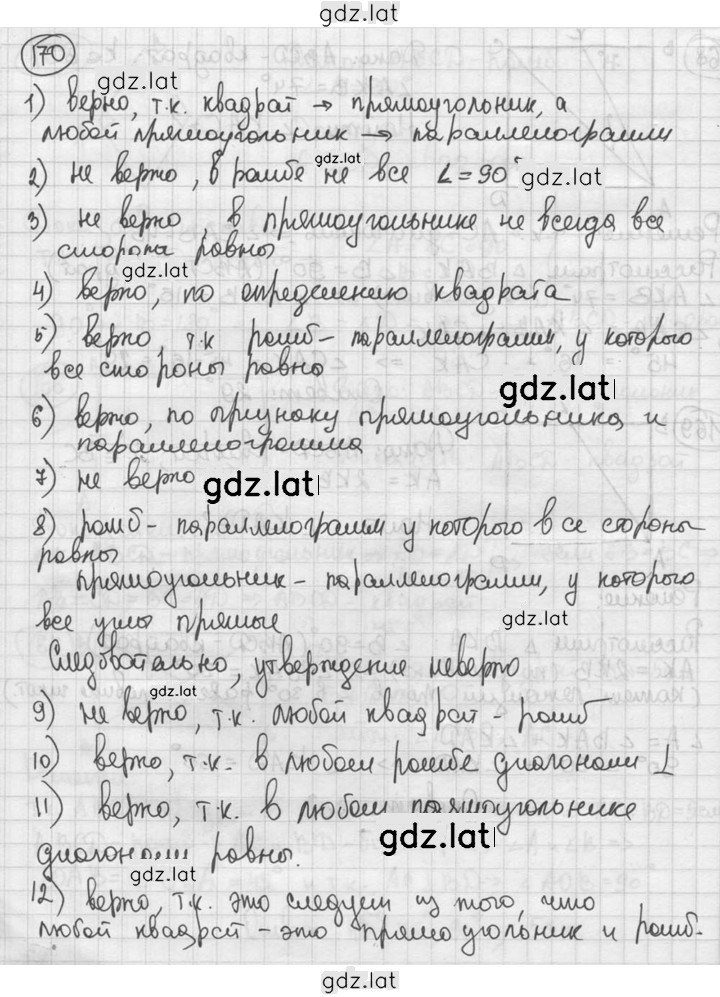 gdz.lat
170
gdz.lat
1) верно, т.к. квадрат → прямоугольник, а
любой прямоугольник → параллелограмм
gdz.lat
2) не верно, в ромбе не все ∠=90°
gdz.lat
3) не верно, в прямоугольнике не всегда все
стороны равны
gdz.lat
4) верно, по определению квадрата
5) верно, т.к ромб - параллелограмм, у которого
все стороны равно
gdz.lat
6) верно, по признаку прямоугольника и
параллелограмма
7) не верно
gdz.lat
8) ромб - параллелограмм у которого все стороны
равны
прямоугольник - параллелограмм, у которого
все углы прямые
gdz.lat
Следовательно, утверждение неверно
gdz.lat
9) не верно, т.к. любой квадрат - ромб
10) верно, т.к. в любом ромбе диагонали ⊥
11) верно, т.к. в любом прямоугольнике
gdz.lat
диагонали равны.
gdz.lat
12) верно, т.к. это следует из того, что
любой квадрат - это прямоугольник и ромб.
gdz.lat